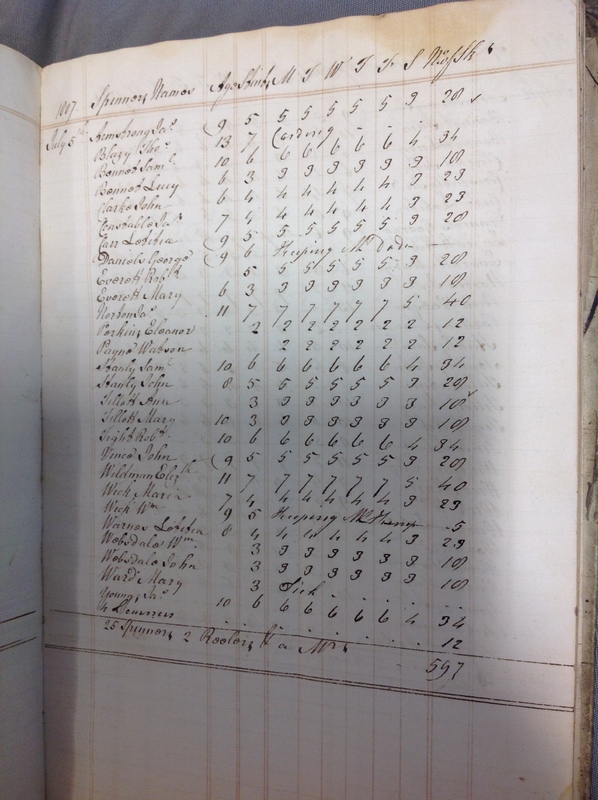 1817 Spinners Names Age Stint M T W T Fr S No of Sk s
July 5th Armstrong Jas 9 5 5 5 5 5 5 3 28
Blazy Thos 13 7 Carding
Bennet Saml 10 6 6 6 6 6 6 4 34
Bennet Lucy 6 3 3 3 3 3 3 3 18
Clarke John 6 4 4 4 4 4 4 3 23
Constable Jas 7 4 4 4 4 4 4 3 23
Carr Letitia 9 5 5 5 5 5 5 3 28
Daniels George 9 6 Keeping Mr
Everett Robt 5 5 5 5 5 5 3 28
Everett Mary 6 3 3 3 3 3 3 3 18
Norton Jas 11 7 7 7 7 7 7 5 40
Perkins Eleanor 2 2 2 2 2 2 2 12
Payne Watson 2 2 2 2 2 2 12
Stanly Saml 10 6 6 6 6 6 6 4 34
Stanly John 8 5 5 5 5 5 5 3 28
Tillott Ann 3 3 3 3 3 3 3 18
Tillott Mary 10 3 3 3 3 3 3 3 18
Tight Robt 10 6 6 6 6 6 6 4 34
Vince John 9 5 5 5 5 5 5 3 28
Wildman Elizth 11 7 7 7 7 7 7 5 40
Wick Maria 7 4 4 4 4 4 4 3 23
Wick Wm 9 5 Keeping Mr 5
Warnes Letitia 8 4 4 4 4 4 4 3 23
Websdale Wm 3 3 3 3 3 3 3 18
Websdale John 3 3 3 3 3 3 3 18
Ward Mary 3 Sick
Young Jas 10 6 6 6 6 6 6 4 34
4 Learners 12
25 Spinners 2 Reelers & a Mrs 597